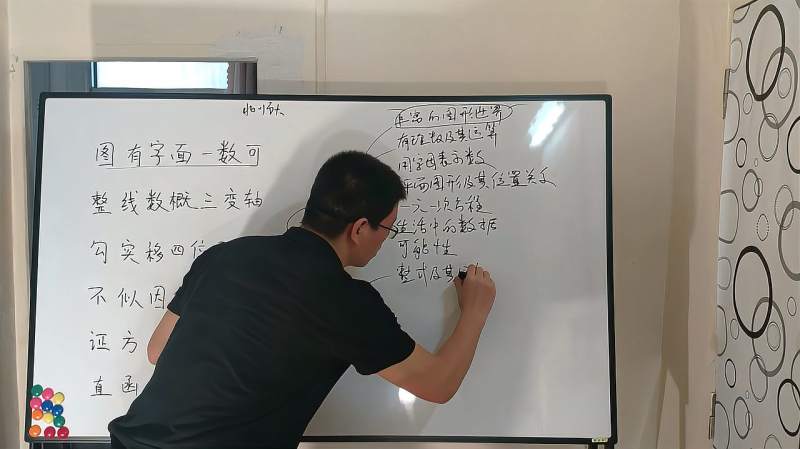 北师大
图有字面一数可
整线数概三变轴
勾实移四位
不似因
证方
直函
丰富的图形世界
有理数及其运算
用字母表示数
平面图形及其位置关系
一元一次方程
生活中的数据
可能性
整式及其